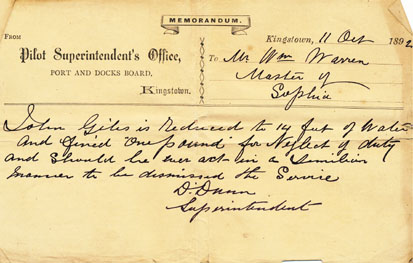 MEMORANDUM.
FROM
Kingstown, 11 Oct 1892
Pilot Superintendent's Office,
PORT AND DOCKS BOARD,
Kingstown.
To Mr Wm Warren
Master of
Sophia
John Giles is Reduced to 14 feet of Water
and fined One pound for Neglect of duty
and Should he ever act in a Similar
manner to be dismissed the Service
D. Dunn
Superintendent